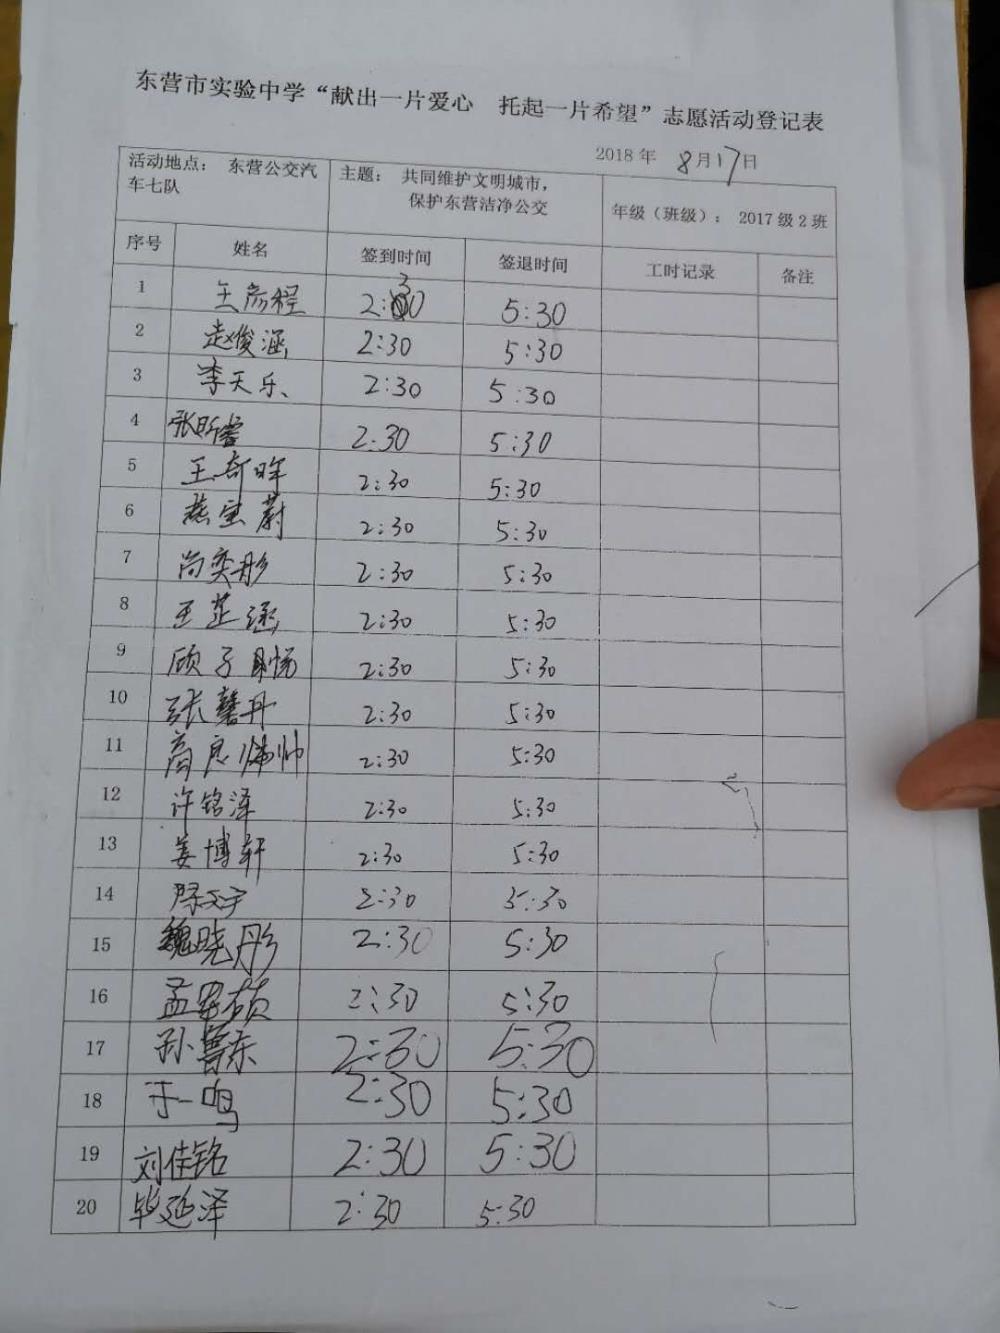 东营市实验中学“献出一片爱心 托起一片希望”志愿活动登记表
2018 年 8月17日
活动地点： 东营公交汽车七队 主题： 共同维护文明城市，保护东营洁净公交 年级（班级）： 2017 级 2 班
序号 姓名 签到时间 签退时间 工时记录 备注
1 王彦程 2:30 5:30
2 赵俊涵 2:30 5:30
3 李天乐 2:30 5:30
4 张昕睿 2:30 5:30
5 王奇晖 2:30 5:30
6 燕宝蔚 2:30 5:30
7 尚奕彤 2:30 5:30
8 王芷涵 2:30 5:30
9 顾子 2:30 5:30
10 张馨丹 2:30 5:30
11 高良 帅 2:30 5:30
12 许铭泽 2:30 5:30
13 姜博轩 2:30 5:30
14 陈文宇 2:30 5:30
15 魏晓彤 2:30 5:30
16 孟 2:30 5:30
17 孙鲁东 2:30 5:30
18 于一鸣 2:30 5:30
19 刘佳铭 2:30 5:30
20 毕延泽 2:30 5:30